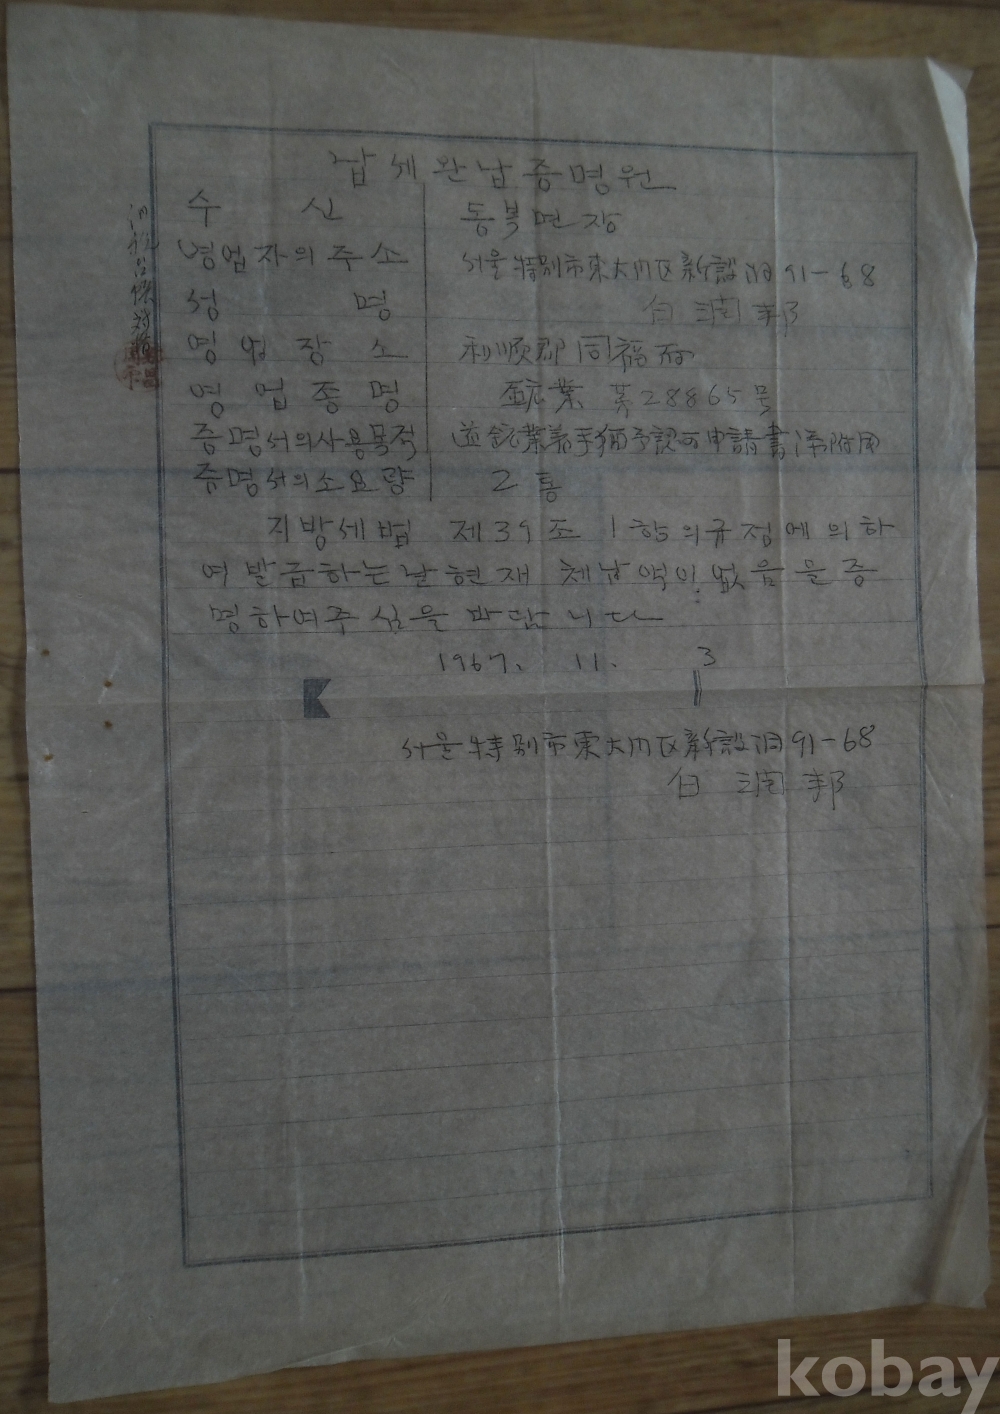 납세완납증명원
수신 동복면장
영업자의주소 서울特別市東大門区新設洞91-68
성명 白潤邦
영업장소 和順郡同福面
영업종명 鉱業 第28865号
증명서의사용목적 鉱業着手猶予認可申請書添附用
증명서의소요량 2통
지방세법 제39조 1항의규정에의하
여발급하는날현재 체납액이없음을증
명하여주심을바랍니다
1967. 11. 3
서울特別市東大門区新設洞91-68
白潤邦
kobay